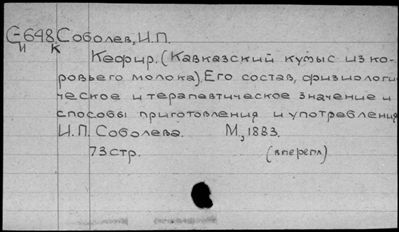 С-648 Соболев, И.П.
И К
Кефир. (Кавказский кумыс из ко-
ровьего молока). Его состав, физиологи-
ческое и терапевтическое значение и
способы приготовления и употребления
И.П. Соболева. М., 1883.
73 стр. (в перепл)